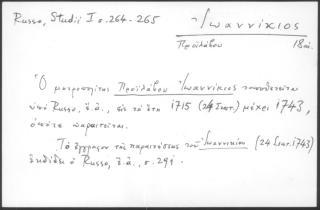 Russo, Studii I σ. 264-265
Ἰωαννίκιος
Προϊλάβου 18 αἰ.
Ὁ μητροπολίτης Προϊλάβου Ἰωαννίκιος τοποθετεῖται
ὑπό Russo, ἔ.ἀ., εἰς τά ἔτη 1715 (24 Σεπτ.) μέχρι 1743,
ὁπότε παραιτεῖται.
Τό ἔγγραφον τῆς παραιτήσεως τοῦ Ἰωαννικίου (24 Σεπτ. 1743)
ἐκδίδει ὁ Russo, ἔ.ἀ., σ. 291.